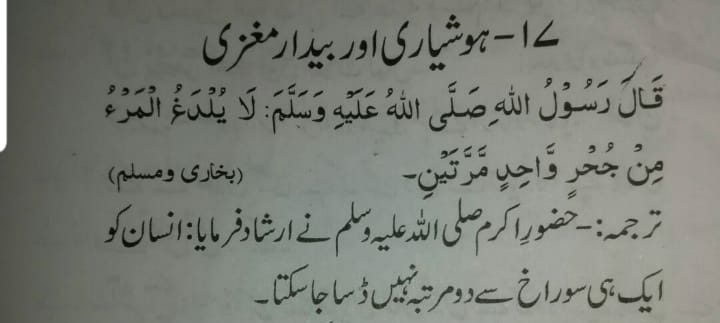 ۱۷- ہوشیاری اور بیدار مغزی
قَالَ رَسُوْلُ اللهِ صَلَّى اللهُ عَلَيْهِ وَسَلَّمَ: لَا يُلْدَغُ الْمَرْءُ
مِنْ جُحْرٍ وَّاحِدٍ مَّرَّتَيْنِ۔ (بخاری و مسلم)
ترجمہ:- حضورِ اکرم صلی اللہ علیہ وسلم نے ارشاد فرمایا: انسان کو
ایک ہی سوراخ سے دو مرتبہ نہیں ڈسا جا سکتا۔